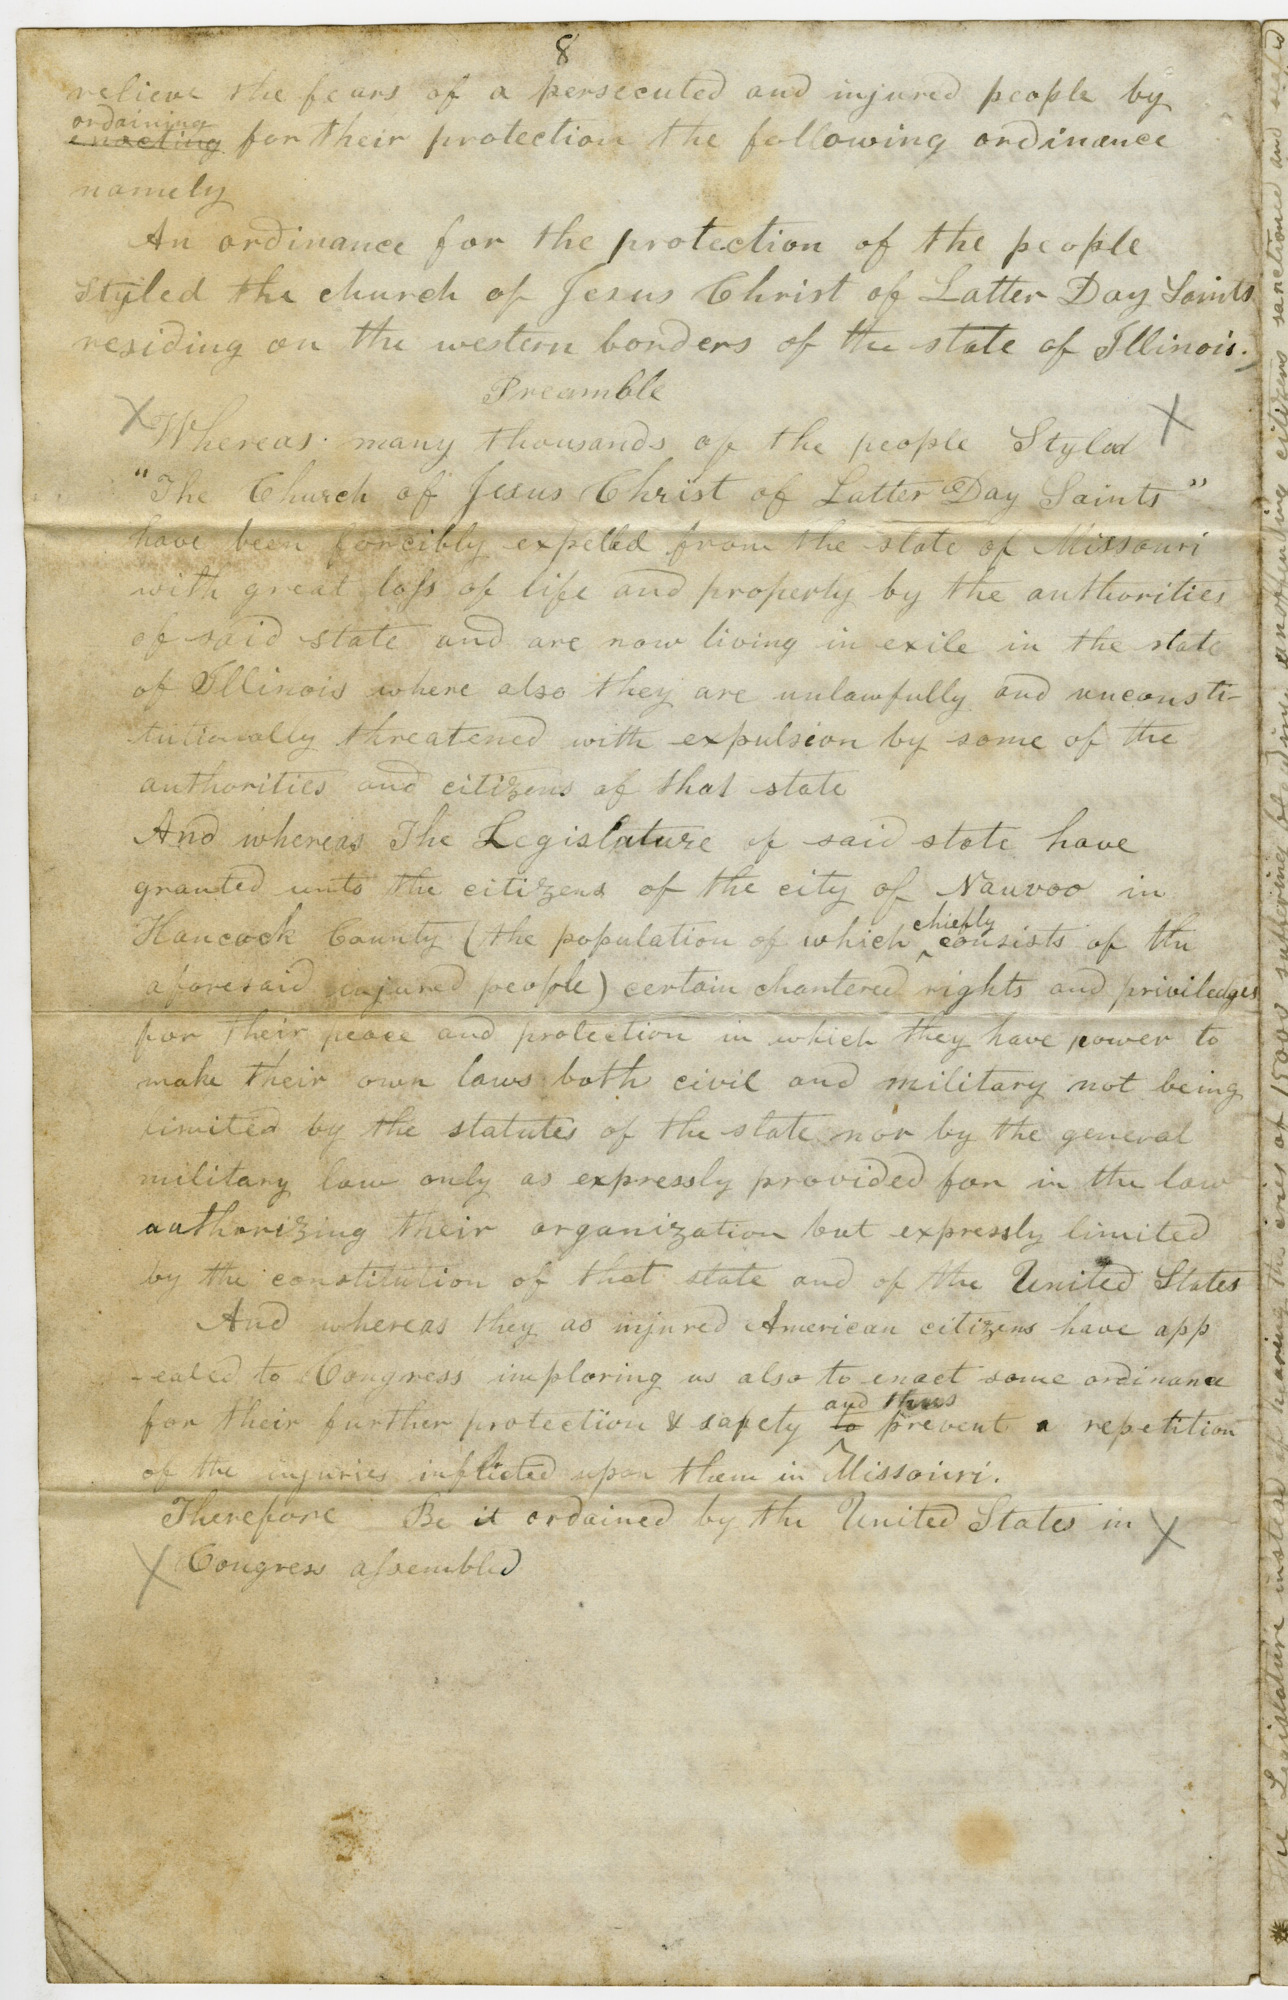 8
relieve the fears of a persecuted and injured people by
ordaining
enacting for their protection the following ordinance
namely
An ordinance for the protection of the people
styled the church of Jesus Christ of Latter Day Saints
residing on the western borders of the state of Illinois.
Preamble
X Whereas many thousands of the people Styled X
"The Church of Jesus Christ of Latter Day Saints"
have been forcibly expelled from the state of Missouri
with great loss of life and property by the authorities
of said state and are now living in exile in the state
of Illinois where also they are unlawfully and unconsti-
tutionally threatened with expulsion by some of the
authorities and citizens of that state
And whereas The Legislature of said state have
granted unto the citizens of the city of Nauvoo in
chiefly
Hancock County (the population of which ^ consists of the
aforesaid injured people) certain chartered rights and priviledges
for their peace and protection in which they have power to
make their own laws both civil and military not being
limited by the statutes of the state nor by the general
military law only as expressly provided for in the law
authorizing their organization but expressly limited
by the constitution of that state and of the United States
And whereas they as injured American citizens have app
-ealed to Congress imploring us also to enact some ordinance
and thus
for their further protection & safety to ^ prevent a repetition
of the injuries inflicted upon them in Missouri.
Therefore Be it ordained by the United States in X
X Congress assembled
* Legislature instead of hearing the cries of 15000 suffering bleeding unoffending citizens sanctioned and